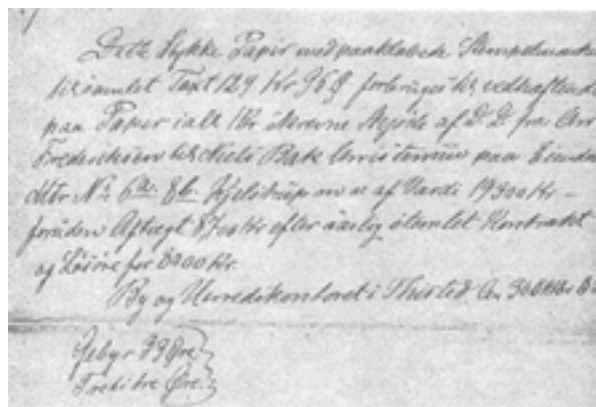 Dette Stykke Papir med paaklæbede Stempelmærker
til samlet Taxt 129 Kr 96 Ø forbruges til vedhæftende
paa Papir ialt 1 Kr skrevne Skjøde af D.D. fra
Frederiksen til Niels Bak Christensen paa Eiendom
Mtr No 6a. 8b. m m af Værdi 19300 Kr -
foruden Aftægt 8700 Kr efter særlig stemplet Kontrakt
og Løsøre for 6000 Kr.
By og Herredskontoret i Thisted
Gebyr 33 Øre.
Treti tre Øre.